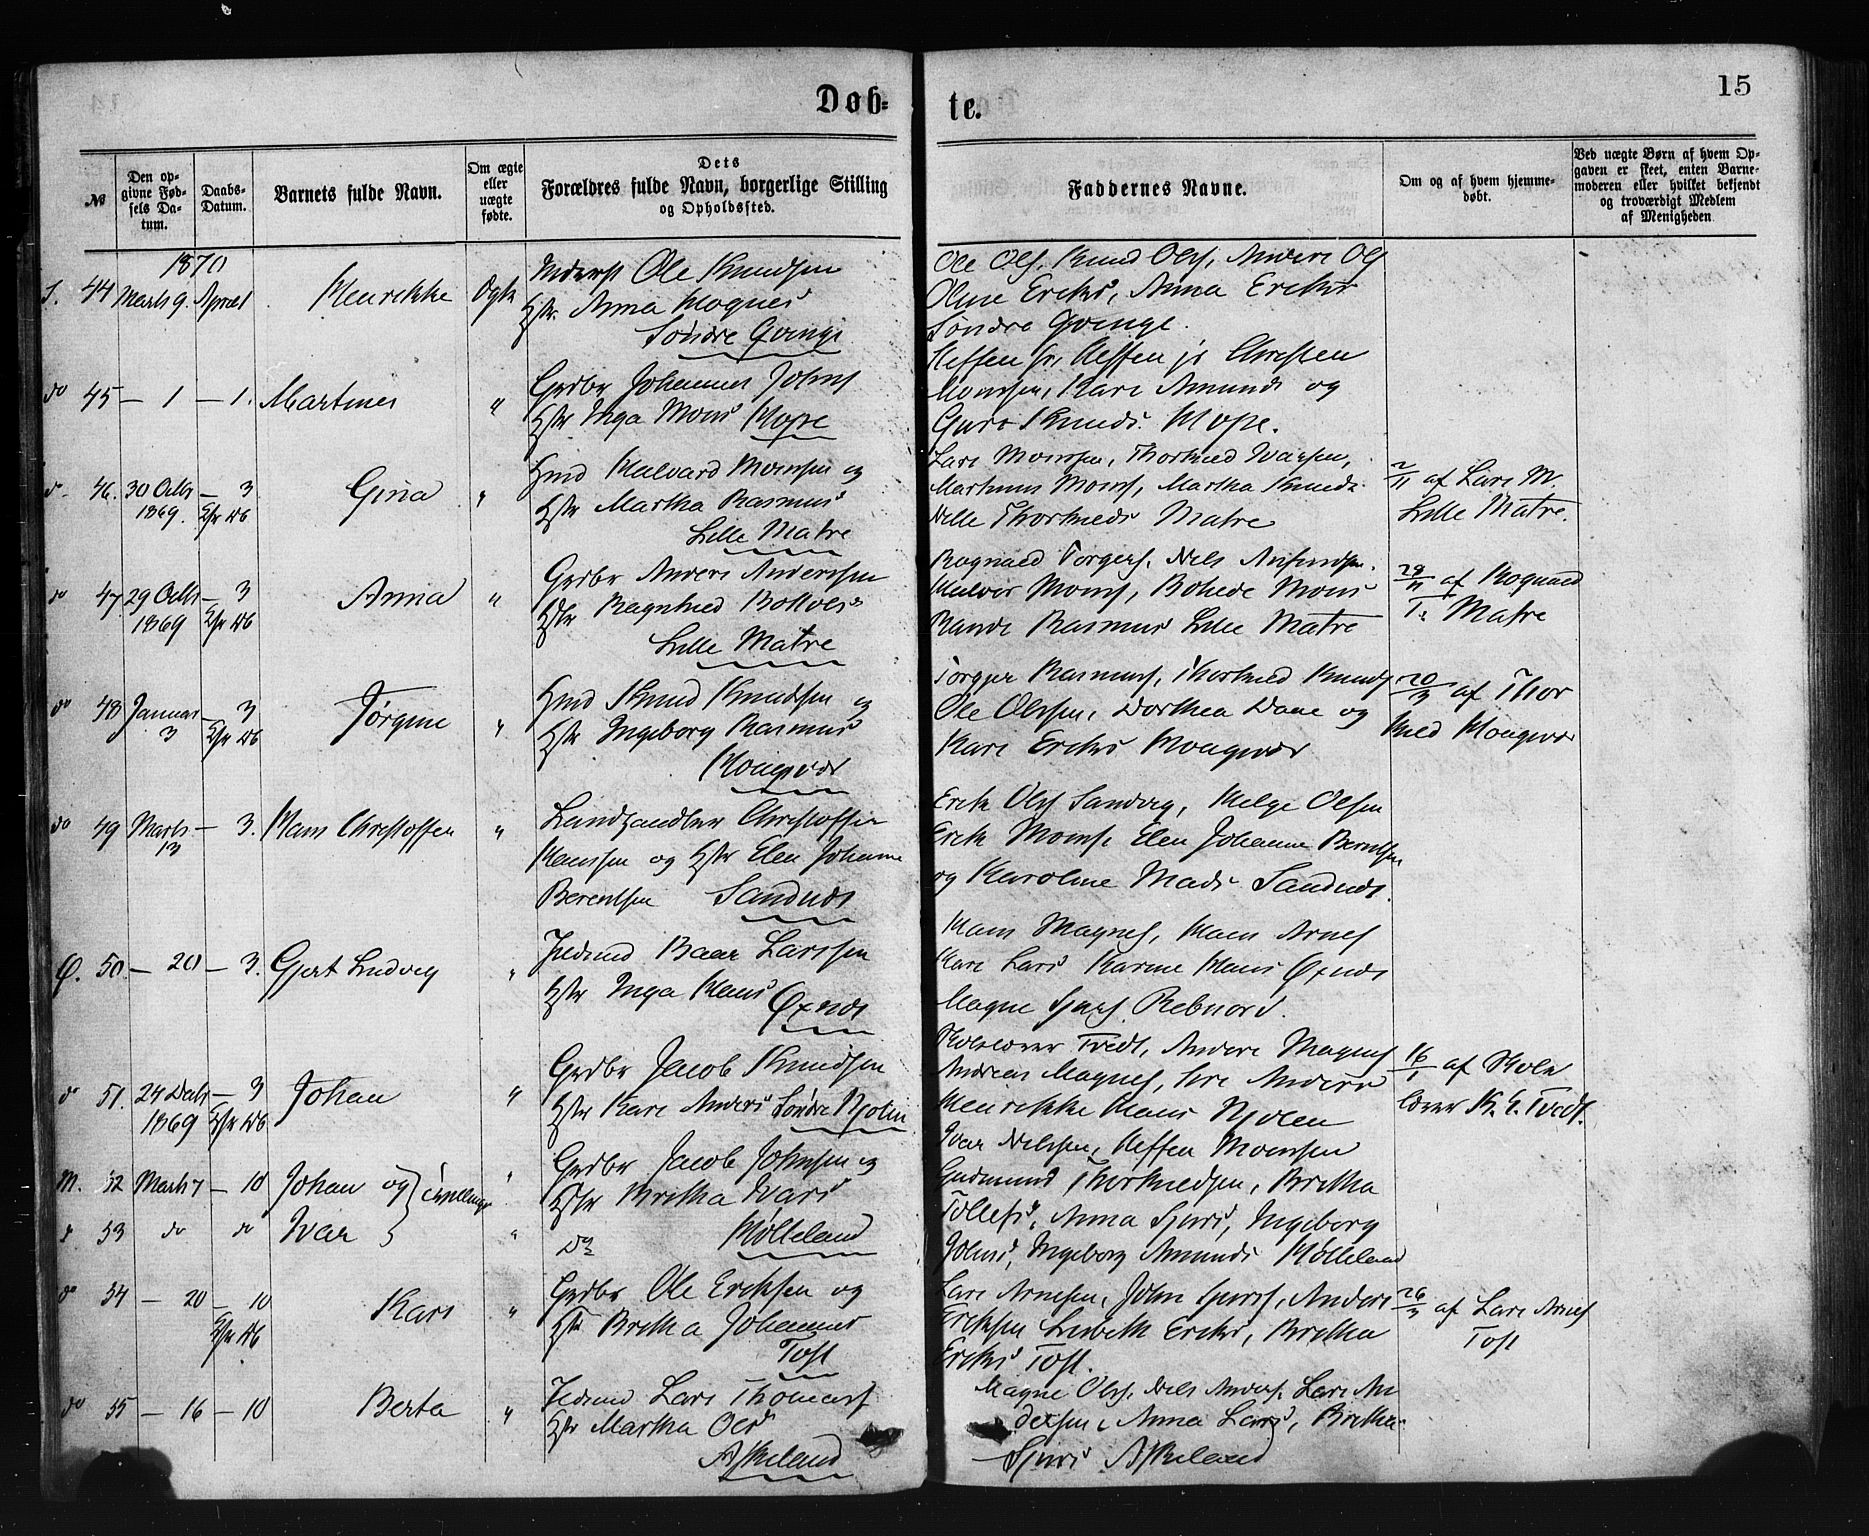 15
Døb-
te.
№
Den op-
givne Fød-
sels Da-
tum.
Daabs-
Datum.
Barnets fulde Navn.
Om ægte
eller
uægte
fødte.
Dets
Forældres fulde Navn, borgerlige Stilling
og Opholdssted.
Faddernes Navne.
Om og af hvem hjemme-
døbt.
Ved uægte Børn af hvem Op-
gaven er skeet, enten Barne-
moderen eller hvilket bekjendt
og troværdigt Medlem
af Menigheden.
1870
S. 44 Marts 9. April Henrikke Ægte
Inderst Ole Knudsen
Hstr. Anna Mognes
Søndre Qvinge
Ole Ols. Knud Ols, Anders Ols
Oline Eriks, Anna Eriks
Søndre Qvinge.
do 45 — 1 — 1. Martines "
Grdbr Johannes Johns
Hstr Inga Mons Hope
Steffen sr, Steffen jr Christen
Monsen, Kari Amunds og
Guro Knuds. Hope.
do 46. 30 Octbr 1869. — 3 Gina "
Hmd Halvard Monsen og
Hstr Martha Rasmus
Lille Matre
Lars Monsen, Thorkild Ivarsen,
Martinus Mons, Martha Knuds.
Nille Thorkilds Matre
2/11 af Lars M.
Lille Matre.
do 47. 29 Octbr 1869 — 3 Anna "
Grdbr Anders Anderssen
Hstr Ragnhild Bottolfs
Lille Matre
Rognald Torgers. Nels Amundsen.
Halvor Mons, Bohede Mons
Rande Rasmus Lille Matre
29/11 af Rognald
T. Matre
do 48 Januar 3 — 3 Jørgine "
Hmd Knud Knudsen og
Hstr Ingeborg Rasmus
Kongsvær
Torger Rasmuss, Thorkild Knuds
Ole Olssen, Dorthea Dane og
Kari Eriks Kongsvær
20/3 af Thor
kild Kongsvær
do 49 Marts 13 — 3. Hans Christoffer "
Landhandler Christoffer
Hanssen og Hstr Elen Johanne
Berentsen Sandnæs
Erik Ols Sandvig, Helge Olsen
Erik Mons. Elen Johanne Berntsen
og Karoline Mads Sandnæs.
Ø. 50. — 20 — 3. Gjert Ludvig "
Inderst Baar Larssen
Hstr Inga Hans
Øxnæs
Hans Magnes, Hans Arnes
Kari Lars Karine Hans Øxnæs
Magne Sjurs Rebnord.
do 51. 24 Decbr 1869 — 3 Johan "
Grdbr Jacob Knudsen
Hstr Kari Anders Søndre Njolen
Skolelærer Tvedt, Anders Magnes
Andreas Magnes, Siri Anders
Henrikke Hans Njolen
16/1 af Skole
lærer K. E. Tvedt.
M. 52 Marts 7 — 10 Johan og } tvillinger "
do 53 do do Ivar "
Grdbr Jacob Johnsen og
Hstr Britha Ivars
do Mølleland
Ivar Nelssen, Steffen Monsen
Gudmund Thorkildsen, Britha
Tollefs, Anna Sjurs, Ingeborg
Johns, Ingeborg Amunds Mølleland
do 54 — 20 — 10 Kari "
Grdbr Ole Eriksen og
Hstr Britha Johannes
Toft
Lars Arnesen, John Sjurss, Anders
Eriksen Lisbeth Eriks, Britha
Eriks Toft.
26/3 af Lars Arnes
Toft
do 55 — 16 — 10 Berta "
Lars Thomass
Hstr Martha Ols
Askeland
Magne Ols. Nils Anders. Lars An
dersen, Anna Lars, Britha
Sjurs Askeland